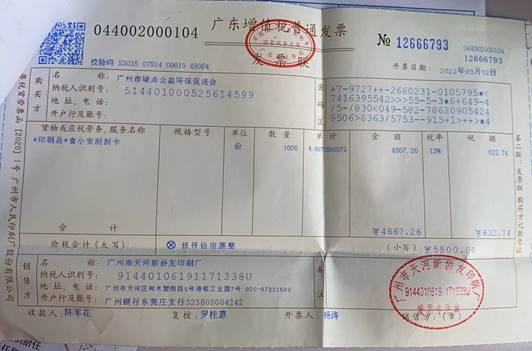 044002000104
广东增值税普通发票
№ 12666793
044002000104
12666793
校验码 53035 07914 09619 48064
发票联
开票日期: 2022年03月02日
购买方
名称: 广州市绿点公益环保促进会
纳税人识别号: 514401000525614599
地址、电话:
开户行及账号:
密码区
+7-9727+-2660231-0105795*<
7416395542>>>55-5-3*6+649-4
/5-/830<049-582-78620905424
9506>6363/5753--915+1+>>*4
货物或应税劳务、服务名称
规格型号
单位
数量
单价
金额
税率
税额
*印刷品*食小安制制卡
份
1000
4867.26
13%
632.74
合计
¥4867.26
¥632.74
价税合计(大写)
伍仟伍佰圆整
(小写) ¥5500.00
销售方
名称: 广州市天河新侨友印刷厂
纳税人识别号: 91440106191171338U
地址、电话:
开户行及账号: 广州银行东莞庄支行323805004242
备注
收款人: 陈军花
复核: 罗桂惠
开票人: 杨涛
销售方: (章)
广州市天河新侨友印刷厂
91440106191171338U
发票专用章
第二联: 发票联 购买方记账凭证